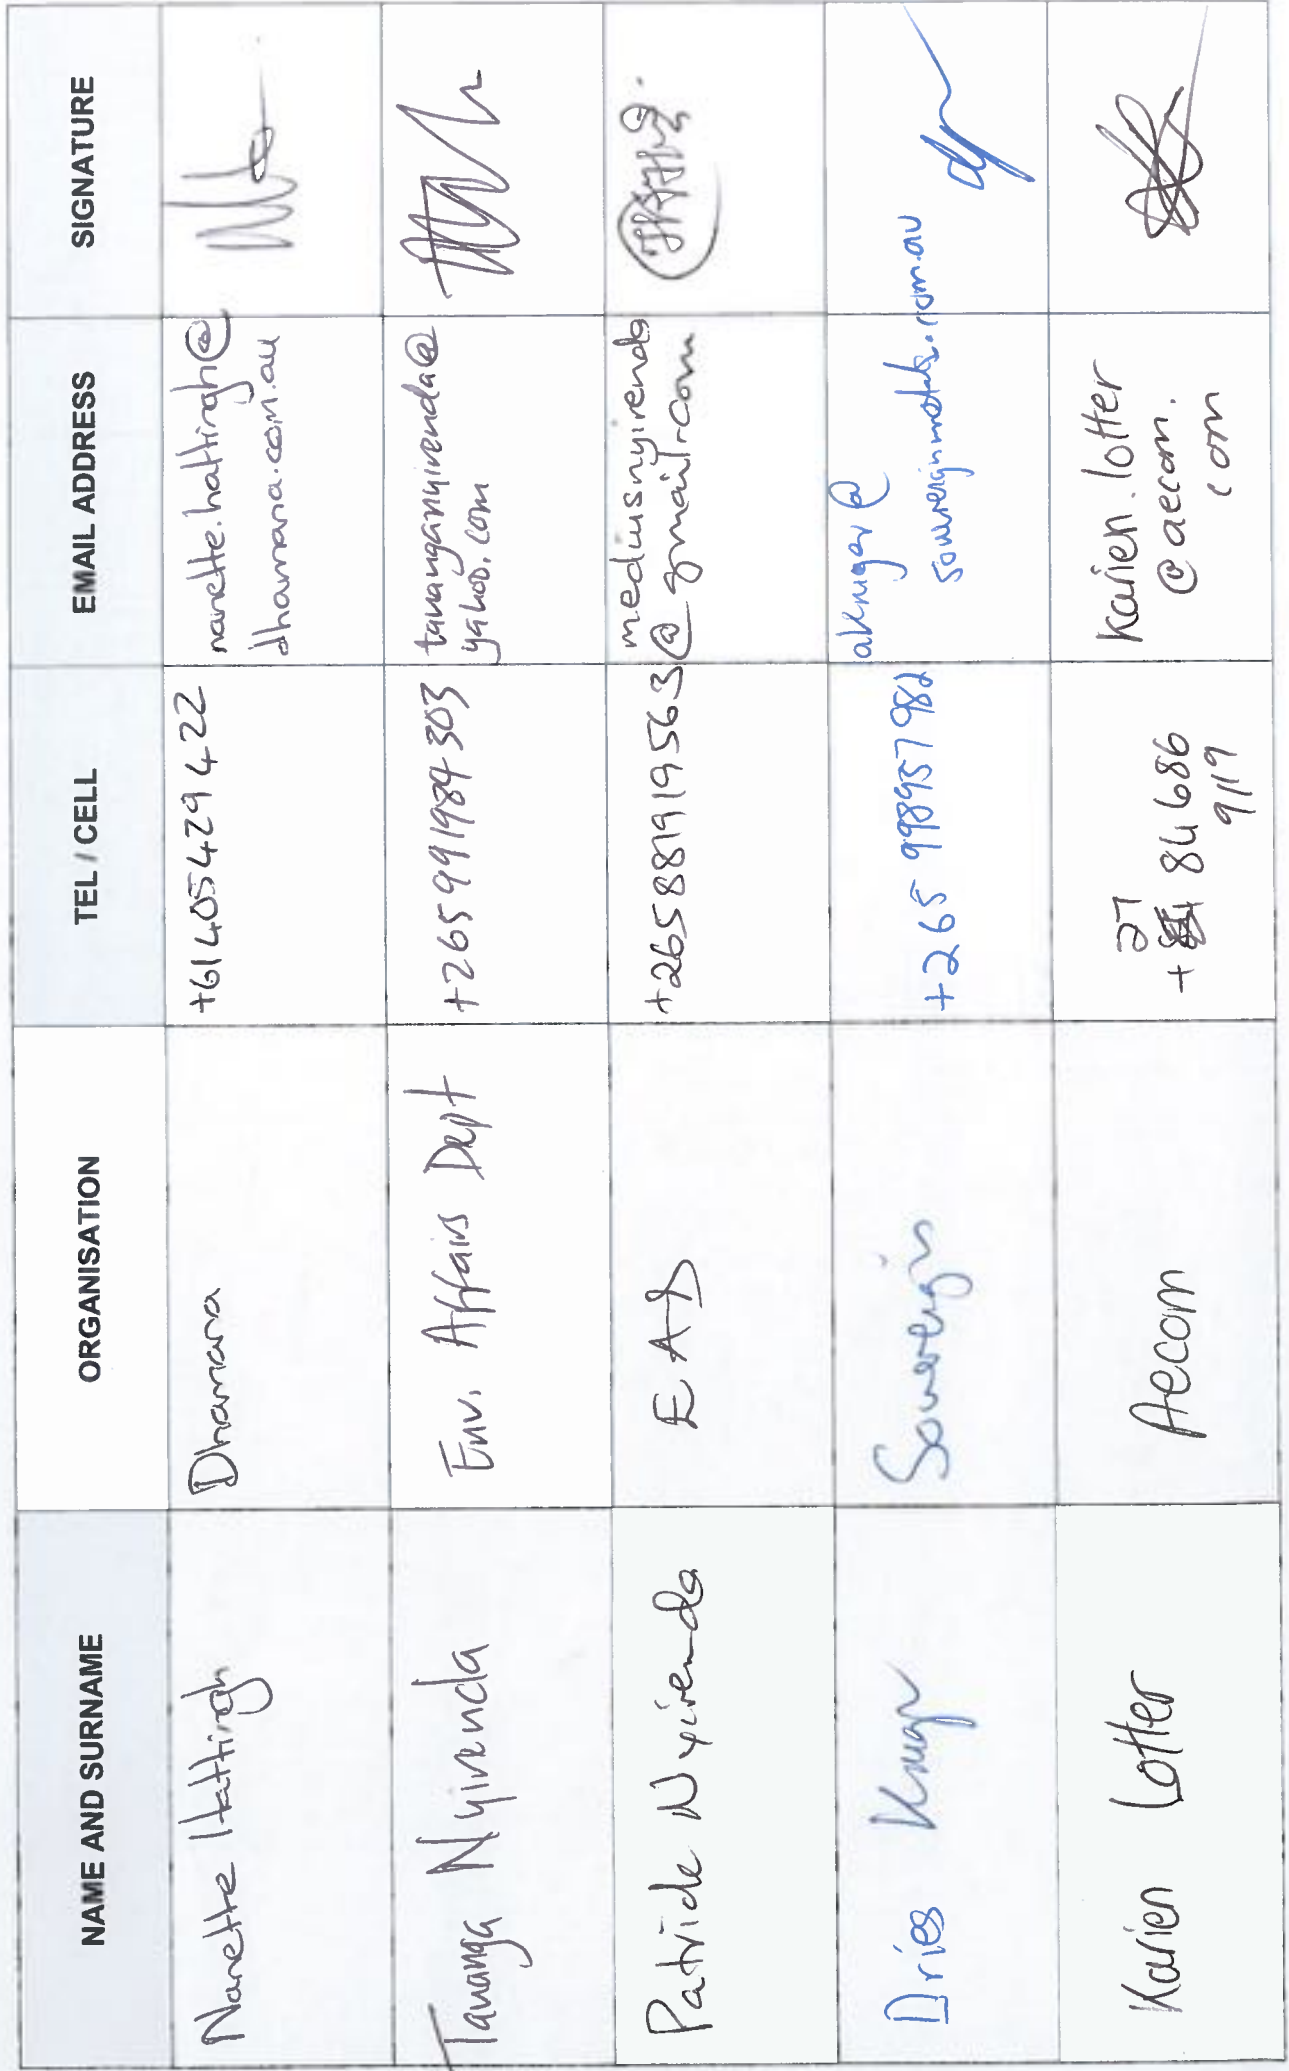 NAME AND SURNAME ORGANISATION TEL / CELL EMAIL ADDRESS SIGNATURE
Nanette Hattingh Dhamana +61 405 429 422 nanette.hattingh@
dhamana.com.au
Tawanga Nyirenda Env. Affairs Dept +265 991984 303 tawanganyirenda@
yahoo.com
Patrick Nyirenda EAD +265881919563 mediusnyirenda
@gmail.com
Dries Kruger Sovereign +265 998957982 akruger@
sovereignmetals.com.au
Karien Lotter Aecom +27 84 686
9119
karien.lotter
@aecom.
com